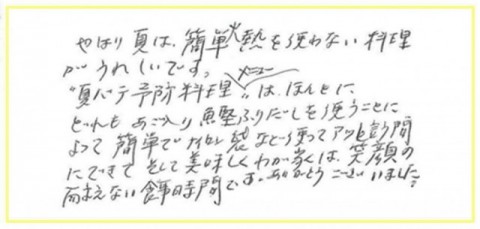 やはり夏は、簡単火熱を使わない料理
がうれしいです。
"夏バテ予防料理"メニューは、ほんとに
どれも あご入り 魚堅ふりだしを使うことに
よって 簡単で 袋など使って アッと 間
にできて そして美味しく わが家くは、笑顔の
絶えない 食事時間です。ありがとうございました。